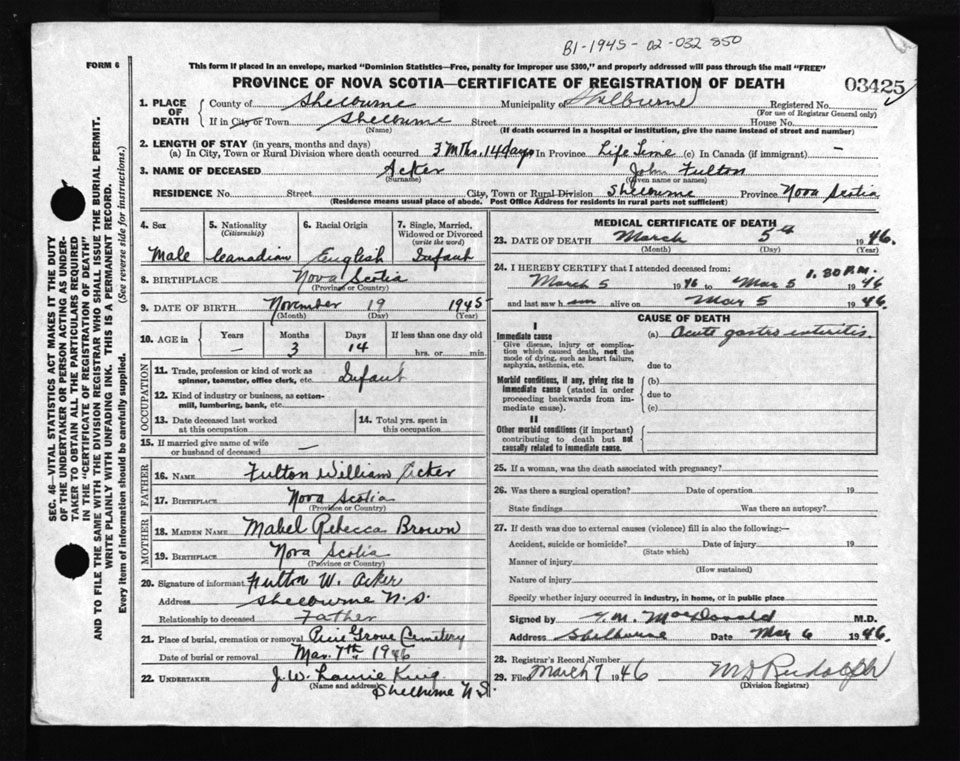 B1-1945-02-032850
FORM 6
This form if placed in an envelope, marked "Dominion Statistics—Free, penalty for improper use $300," and properly addressed will pass through the mail "FREE"
PROVINCE OF NOVA SCOTIA—CERTIFICATE OF REGISTRATION OF DEATH
03425
1. PLACE OF DEATH
County of Shelburne Municipality of Shelburne Registered No.
(For use of Registrar General only)
If in City or Town Shelburne Street House No.
(Name) (If death occurred in a hospital or institution, give the name instead of street and number)
2. LENGTH OF STAY (in years, months and days)
(a) In City, Town or Rural Division where death occurred 3 mths. 14 days In Province Life Time (c) In Canada (if immigrant) —
3. NAME OF DECEASED Acker John Fulton
(Surname) (Given name or names)
RESIDENCE No. Street City, Town or Rural Division Shelburne Province Nova Scotia
(Residence means usual place of abode. Post Office Address for residents in rural parts not sufficient)
4. Sex, 5. Nationality (Citizenship) 6. Racial Origin 7. Single, Married, Widowed or Divorced (write the word)
Male Canadian English Infant
8. BIRTHPLACE Nova Scotia
(Province or Country)
9. DATE OF BIRTH November 19 1945
(Month) (Day) (Year)
10. AGE in Years Months Days If less than one day old
— 3 14 hrs. or min.
OCCUPATION
11. Trade, profession or kind of work as spinner, teamster, office clerk, etc. Infant
12. Kind of industry or business, as cotton-mill, lumbering, bank, etc.
13. Date deceased last worked at this occupation 14. Total yrs. spent in this occupation
15. If married give name of wife or husband of deceased —
FATHER
16. NAME Fulton William Acker
17. BIRTHPLACE Nova Scotia
(Province or Country)
MOTHER
18. MAIDEN NAME Mabel Rebecca Brown
19. BIRTHPLACE Nova Scotia
(Province or Country)
20. Signature of informant Fulton W. Acker
Address Shelburne N.S.
Relationship to deceased Father
21. Place of burial, cremation or removal Pine Grove Cemetery
Date of burial or removal Mar. 7th 1946
22. UNDERTAKER J.W. Laurie King
(Name and address) Shelburne N.S.
MEDICAL CERTIFICATE OF DEATH
23. DATE OF DEATH March 5th 1946.
(Month) (Day) (Year)
24. I HEREBY CERTIFY that I attended deceased from: 1.30 P.M.
March 5 1946 to Mar 5 1946
and last saw him alive on Mar 5 1946.
CAUSE OF DEATH
I
Immediate cause (a) Acute gastro enteritis.
Give disease, injury or complication which caused death, not the mode of dying, such as heart failure, asphyxia, asthenia, etc.
due to
Morbid conditions, if any, giving rise to immediate cause (stated in order proceeding backwards from immediate cause).
(b)
due to
(c)
II
Other morbid conditions (if important) contributing to death but not causally related to immediate cause.
25. If a woman, was the death associated with pregnancy?
26. Was there a surgical operation? Date of operation 19
State findings Was there an autopsy?
27. If death was due to external causes (violence) fill in also the following:—
Accident, suicide or homicide? Date of injury 19
(State which)
Manner of injury
(How sustained)
Nature of injury
Specify whether injury occurred in industry, in home, or in public place
Signed by MacDonald M.D.
Address Shelburne Date Mar 6 1946.
28. Registrar's Record Number
29. Filed March 7 1946 Rudolph
(Division Registrar)
SEC. 46—VITAL STATISTICS ACT MAKES IT THE DUTY
OF THE UNDERTAKER OR PERSON ACTING AS UNDER-
TAKER TO OBTAIN ALL THE PARTICULARS REQUIRED
IN THE "CERTIFICATE OF REGISTRATION OF DEATH"
AND TO FILE THE SAME WITH THE DIVISION REGISTRAR WHO SHALL ISSUE THE BURIAL PERMIT.
WRITE PLAINLY WITH UNFADING INK. THIS IS A PERMANENT RECORD.
Every item of information should be carefully supplied. (See reverse side for instructions.)